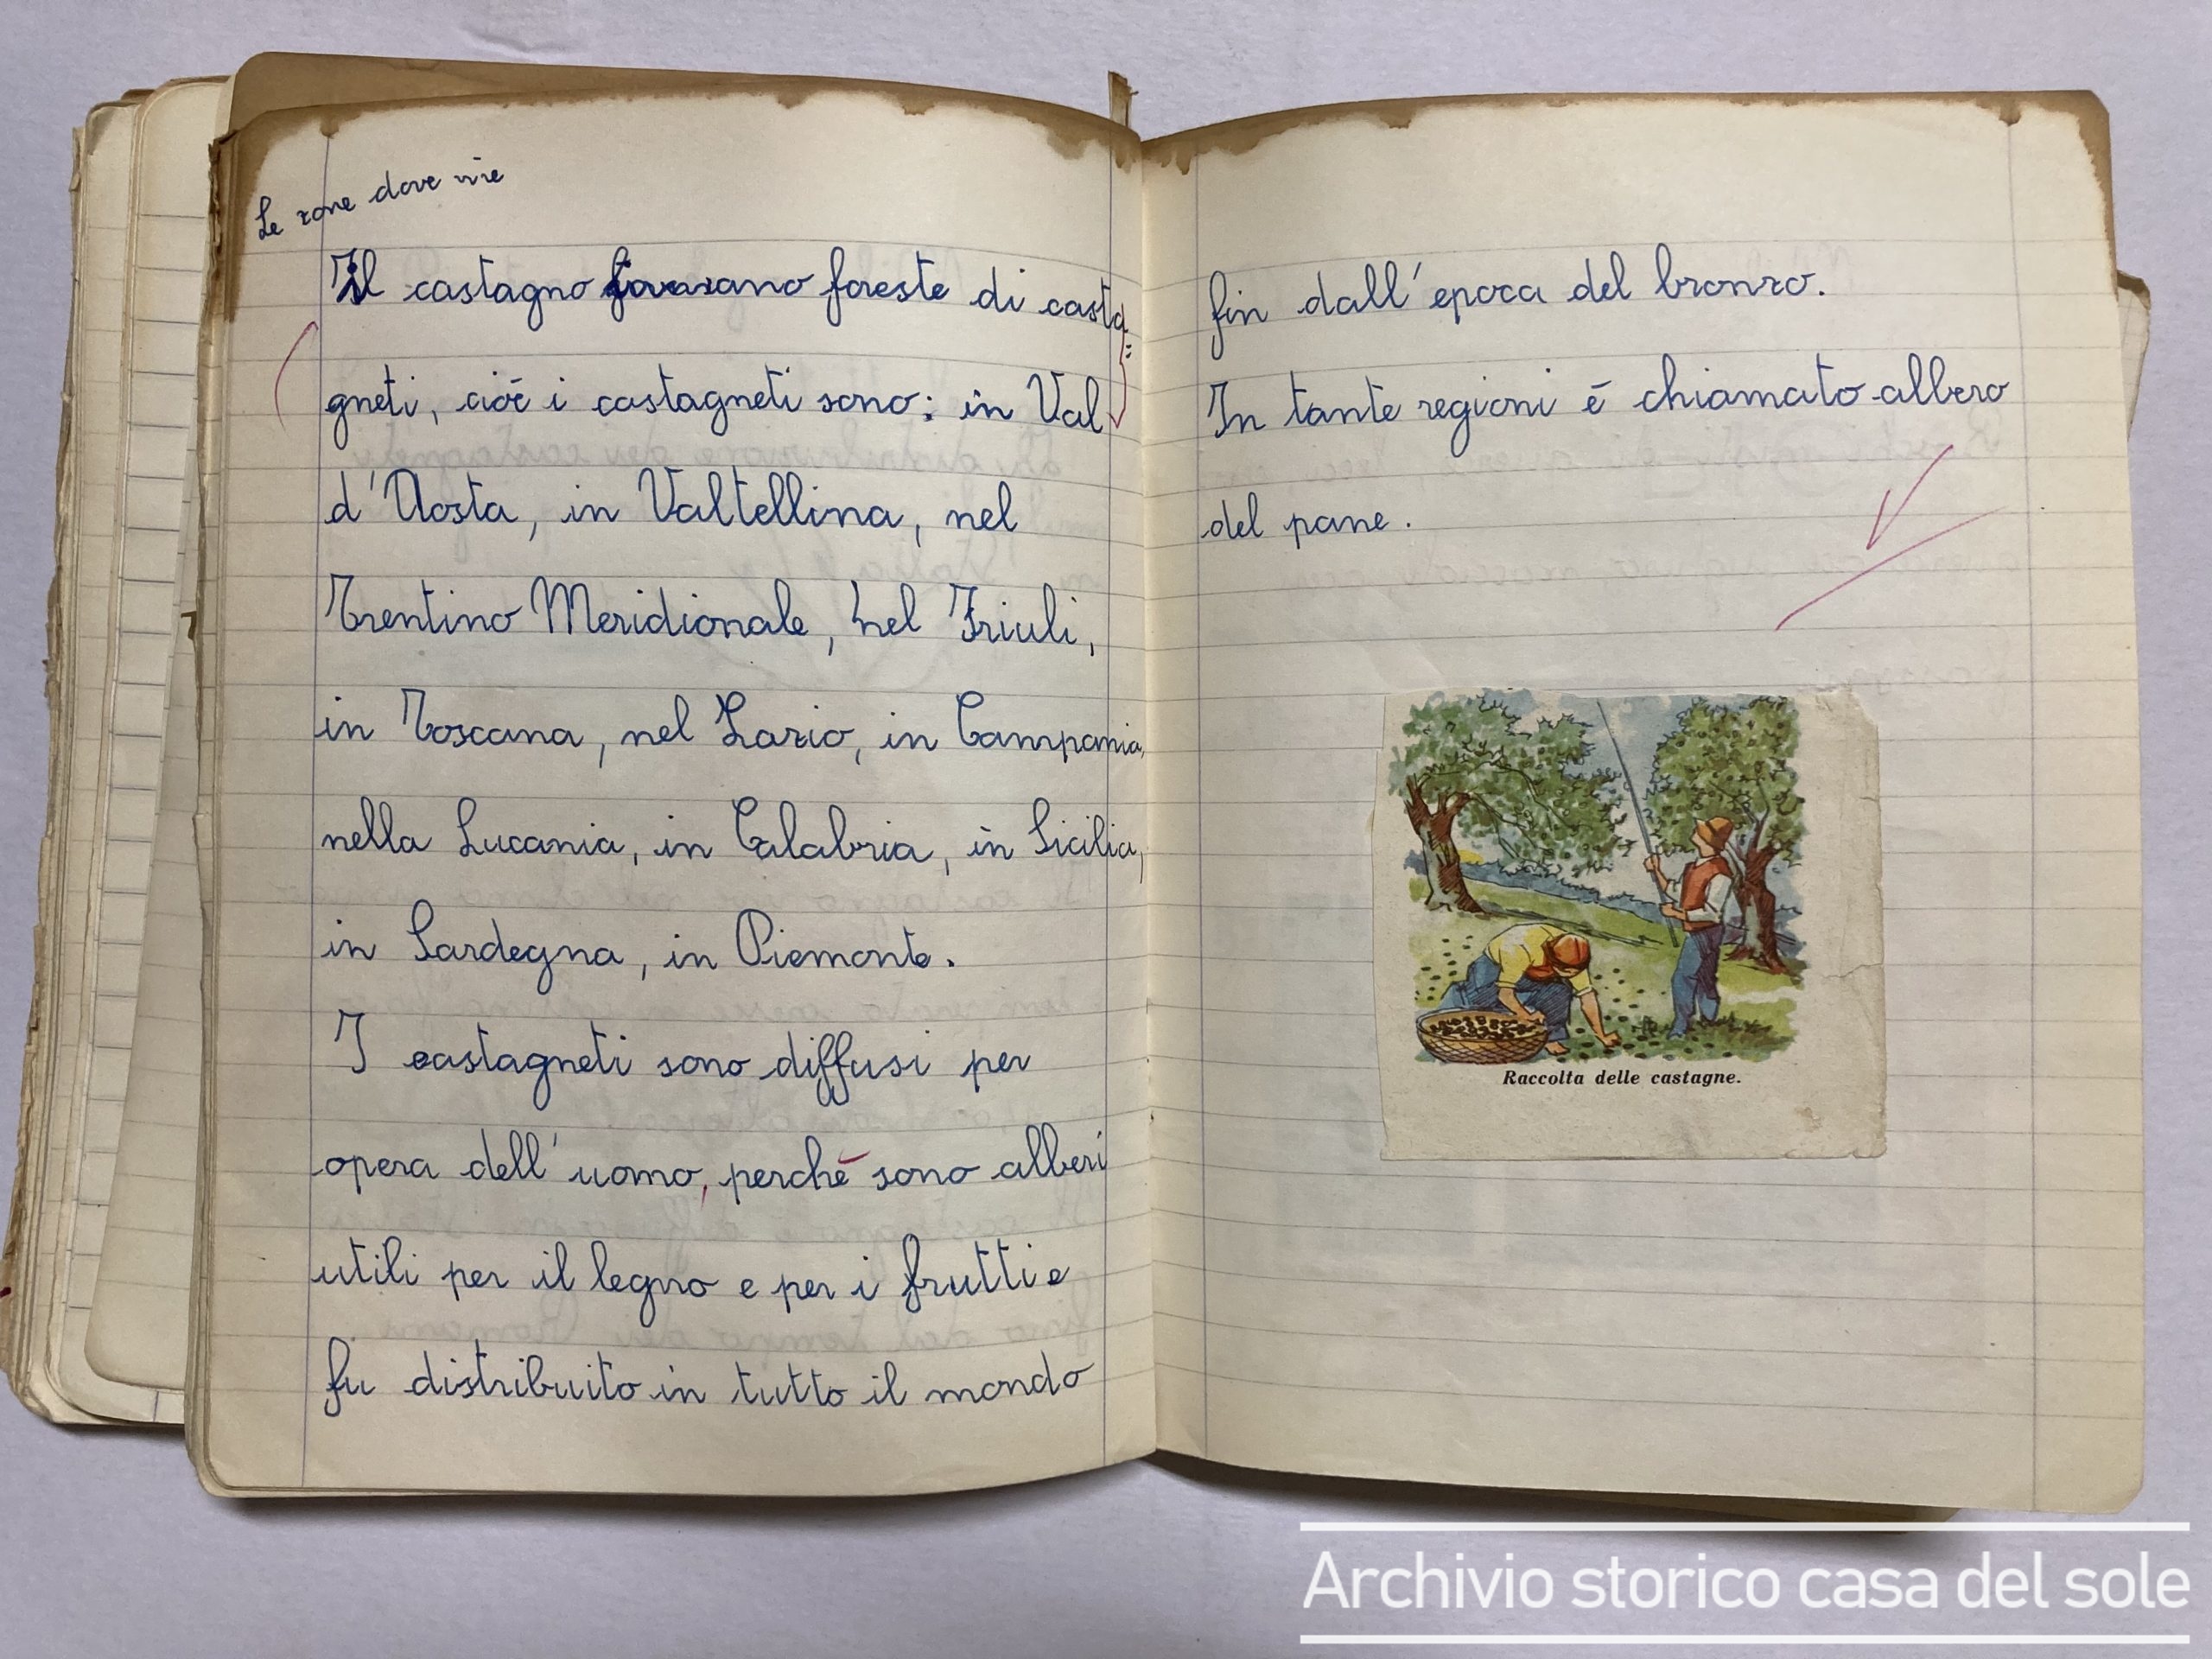 Le zone dove vive
Il castagno foreste di casta=
gneti, cioè i castagneti sono: in Val
d'Aosta, in Valtellina, nel
Trentino Meridionale, nel Friuli,
in Toscana, nel Lazio, in Campania,
nella Lucania, in Calabria, in Sicilia,
in Sardegna, in Piemonte.
I castagneti sono diffusi per
opera dell'uomo, perchè sono alberi
utili per il legno e per i frutti e
fu distribuito in tutto il mondo
fin dall'epoca del bronzo.
In tante regioni è chiamato albero
del pane.
Raccolta delle castagne.
Archivio storico casa del sole